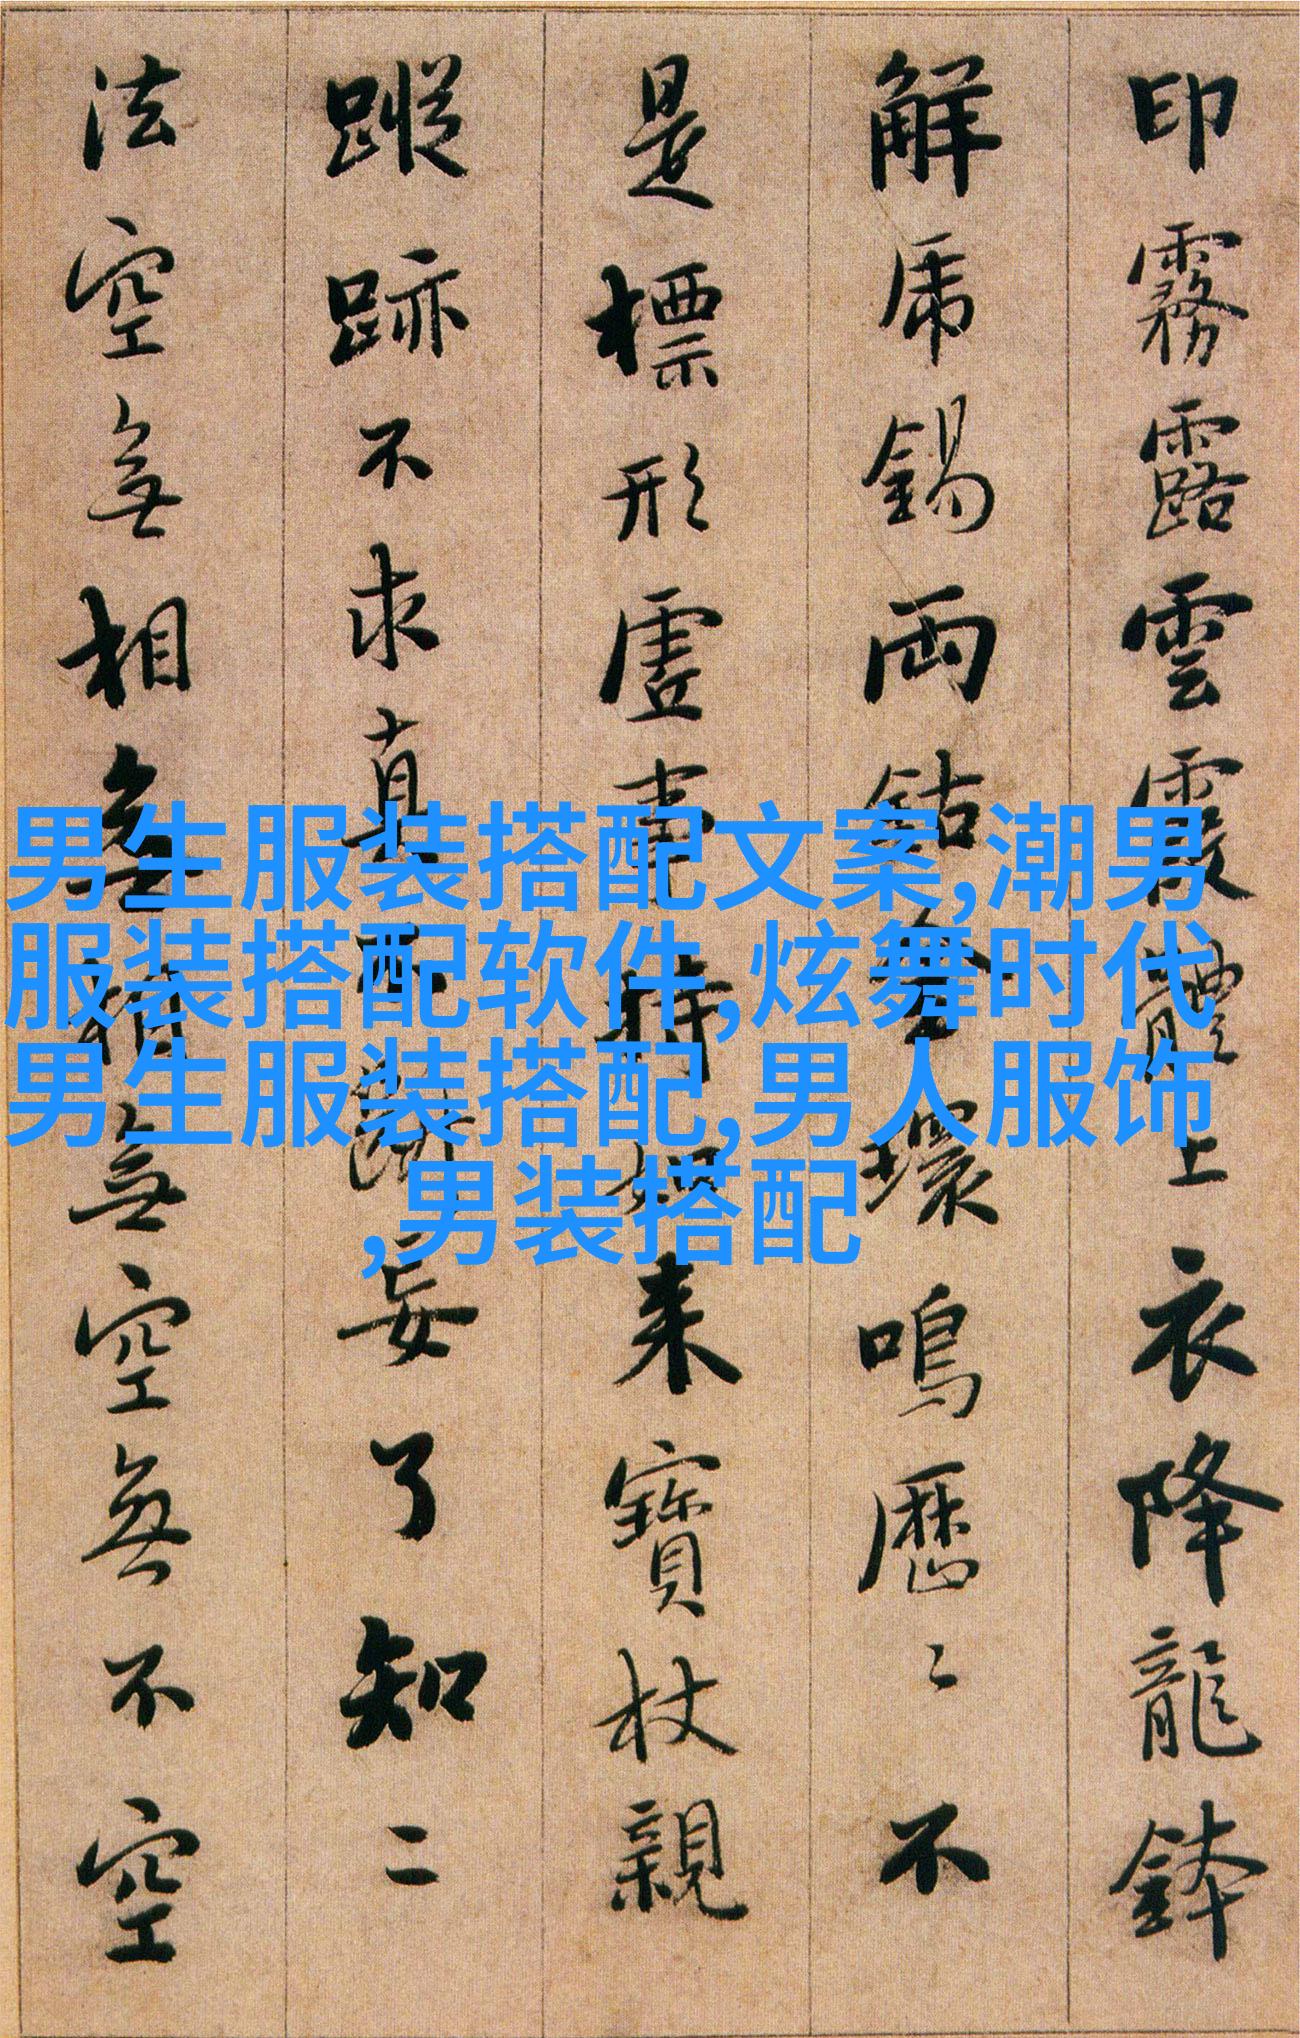 印霧露雲霞體上衣降龍鉢
解虎錫兩鈷金環鳴歷〻不
是標形虛事持如来寶杖親
蹤跡不求真不斷妄了知二
法空無相無相無空無不空
男生服装搭配文案,潮男
服装搭配软件,炫舞时代
男生服装搭配,男人服饰
,男装搭配